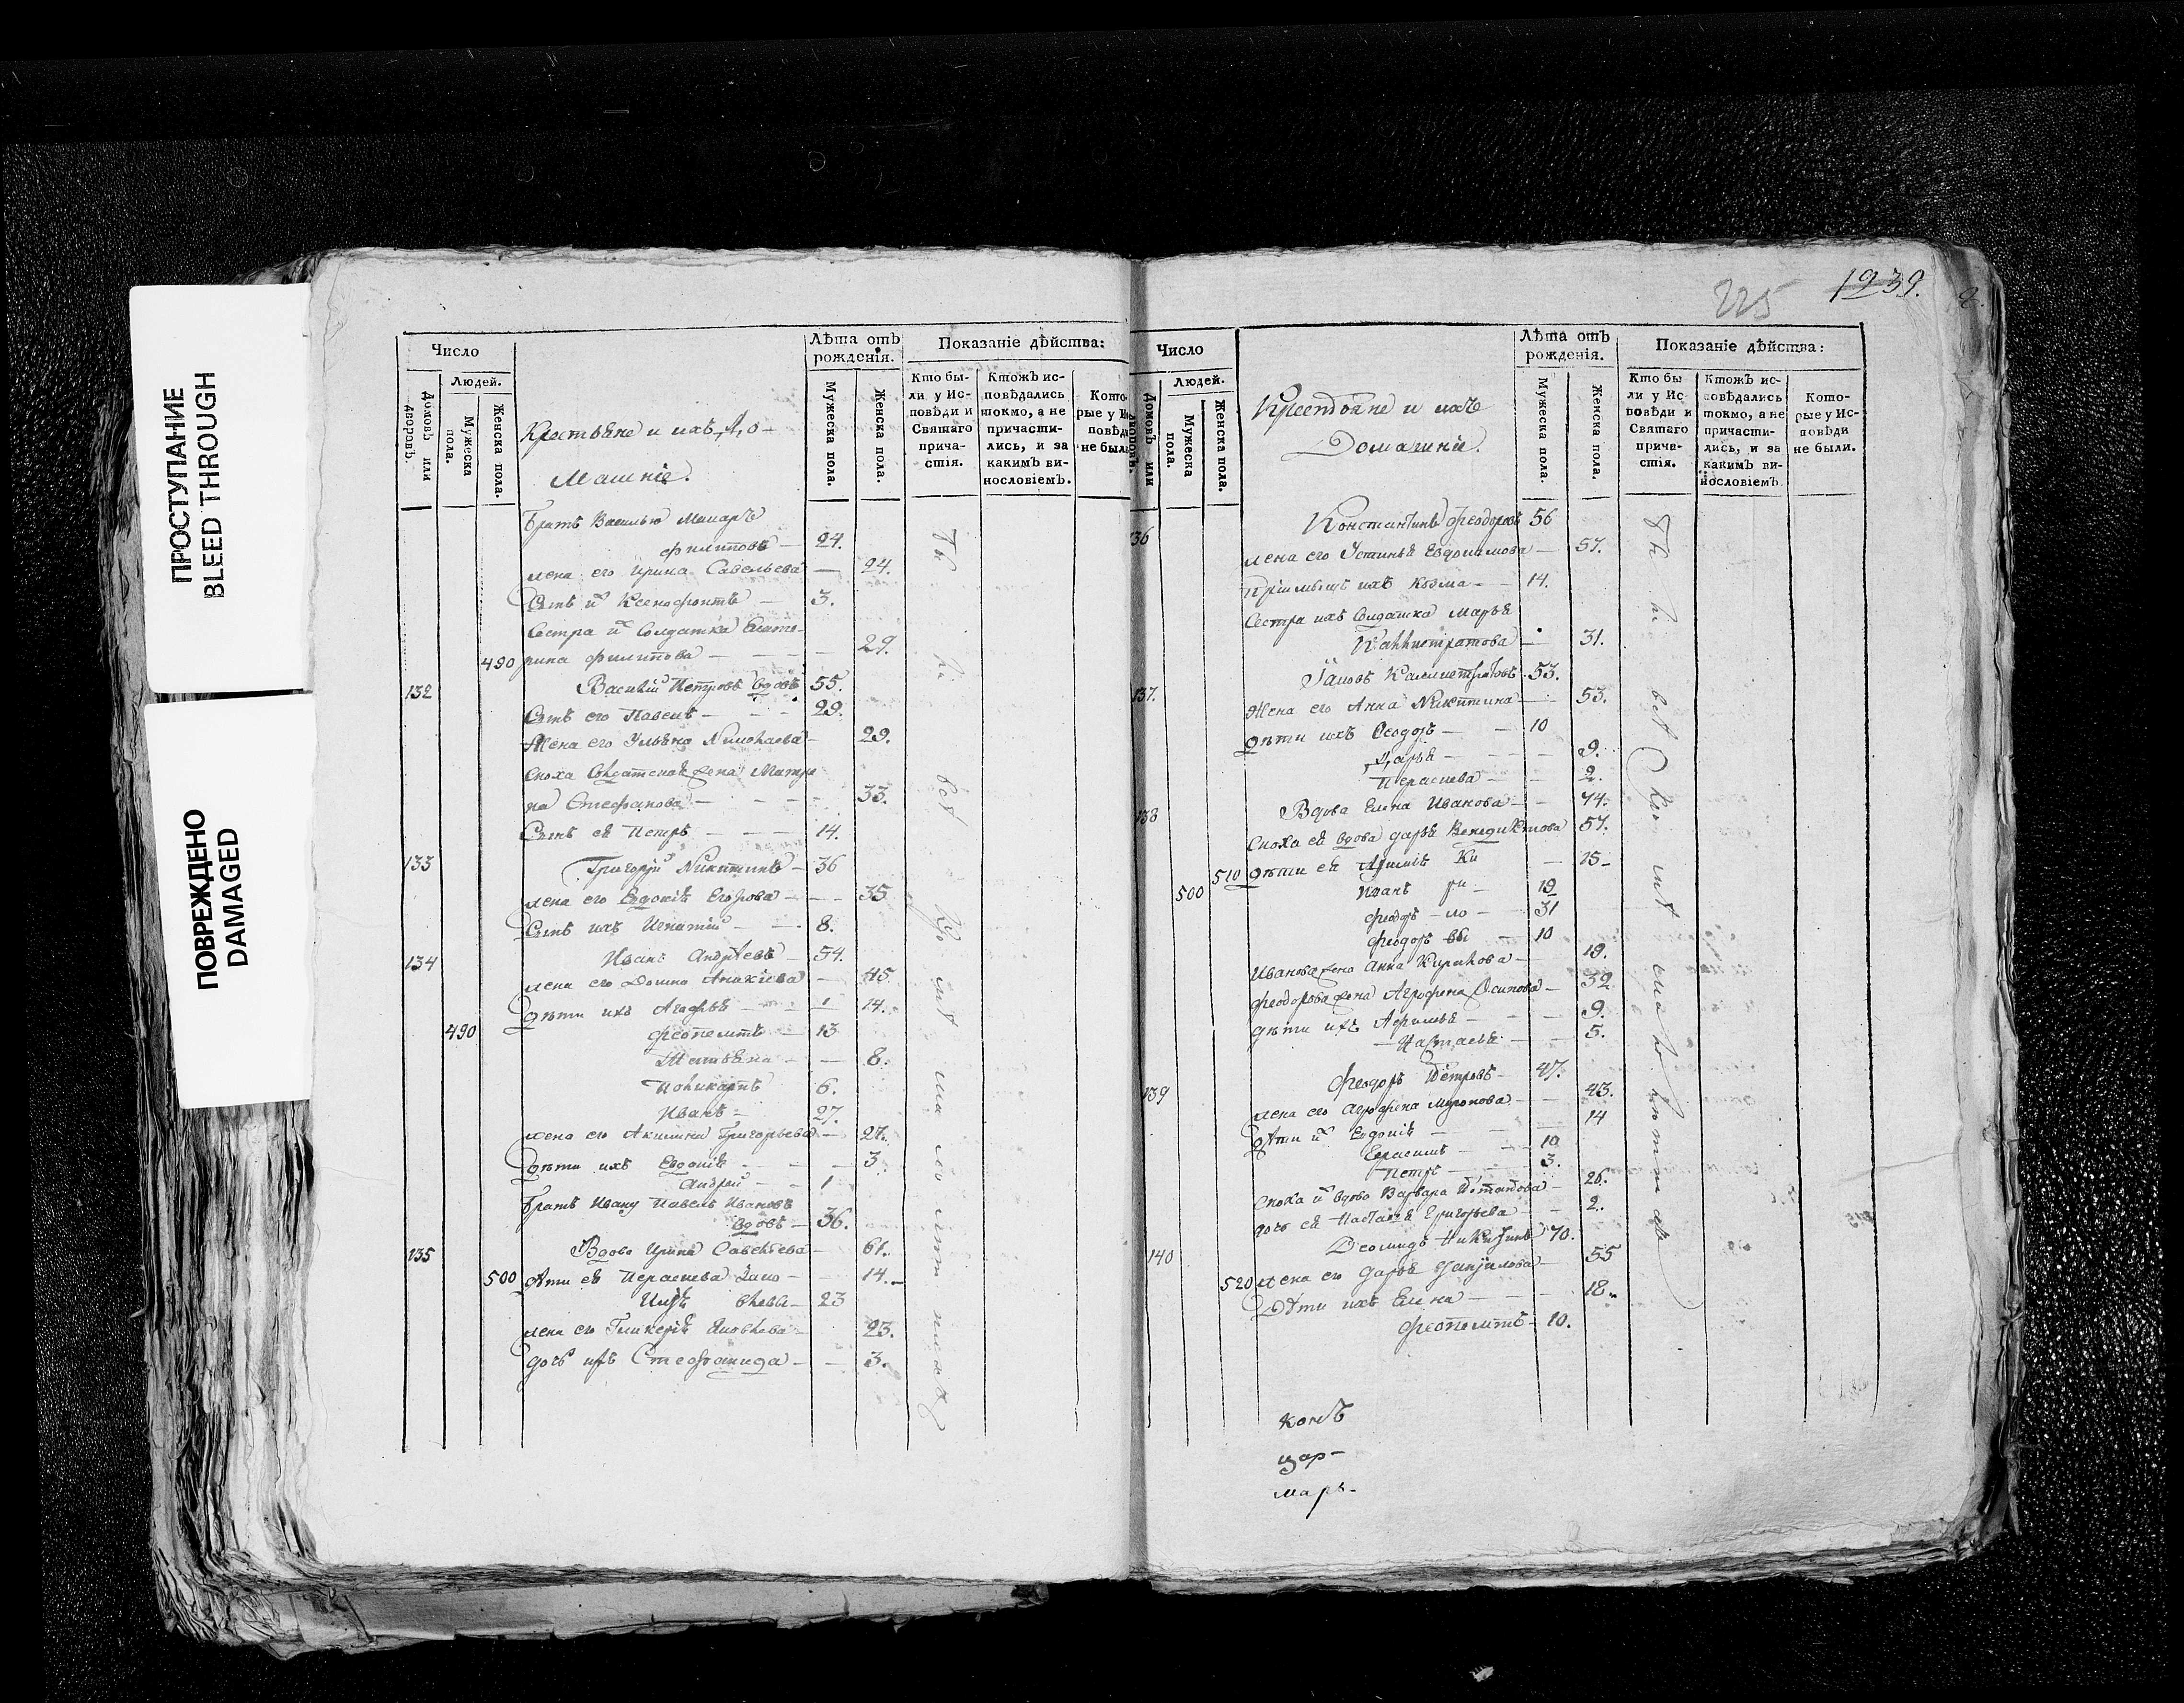 ПРОСТУПАНИЕ
BLEED THROUGH
ПОВРЕЖДЕНО
DAMAGED
Число
Людей.
Домовъ или дворовъ.
Мужеска пола.
Женска пола.
Крестьяне и ихъ До-
машніе.
Лѣта отъ рожденія.
Мужеска пола.
Женска пола.
Показаніе дѣйства:
Кто были у Исповѣди и Святаго причастія.
Ктожъ исповѣдались токмо, а не причастились, и за какимъ винословіемъ.
Которые у Исповѣди не были
Братъ Василью Макаръ
Филиповъ — 24.
жена его Ирина Савельева — 24.
Сынъ их Ксенофонтъ — 3.
Сестра их Солдатка Екате-
490 рина Филипова — 29.
132 Василій Петровъ вдовъ 55.
Сынъ его Павелъ — 29.
Жена его Ульяна Николаева — 29.
Сноха Солдатская жена Матре
на Стефанова — 33.
Сынъ ея Петръ — 14.
133 Григорій Никитинъ — 36
жена его Евдокія Егорова — 35
Сынъ ихъ Игнатій — 8.
134 Иванъ Андреевъ — 54.
жена его Домна Аникіева — 45
дѣти ихъ Агафья — 14.
490 Феопемптъ — 13
Татьяна — 8.
Поликарпъ 6.
Иванъ — 27.
жена его Акилина Григорьева — 27.
дѣти ихъ Евдокія — 3.
Андрей — 1
Братъ Ивану Павелъ Ивановъ
вдовъ — 36.
135 Вдова Ирина Савельева — 61.
500 дѣти ея Параскева — 14.
23
жена его Гликерія Яковлева — 23.
дочь ихъ Стефанида — 3.
225
1239.
Число
Людей.
Домовъ или дворовъ.
Мужеска пола.
Женска пола.
Крестьяне и ихъ
Домашніе.
Лѣта отъ рожденія.
Мужеска пола.
Женска пола.
Показаніе дѣйства:
Кто были у Исповѣди и Святаго причастія.
Ктожъ исповѣдались токмо, а не причастились, и за какимъ винословіемъ.
Которые у Исповѣди не были.
136 Константинъ Феодоровъ 56
жена его Устинья Евдокимова — 57.
Пріимышъ ихъ Козма — 14.
Сестра ихъ Солдатка Марья
Каллистратова — 31.
137. Іаковъ Каллистратовъ 53.
Жена его Анна Никитина — 53.
дѣти ихъ Феодоръ — 10
Дарья — 9.
Параскева — 2.
138 Вдова Елена Иванова — 74.
Сноха ея вдова дарья Венедиктова 57.
510 дѣти ея — 15
500 Иванъ — 19
Феодоръ — 31
Феодоръ — 10
Иванова жена Анна Кирилова — 19.
Феодорова жена Агрофена Осипова — 32
дѣти ихъ — 9.
Настасья — 5.
139 Феодоръ Петровъ — 47.
жена его Агрофена Миронова — 43.
дѣти их Евдокія — 14
Герасимъ — 10
Петръ — 3.
Сноха их вдова Варвара — 26.
дочь ея Настасья Григорьева — 2.
140 Деомидъ Никитинъ 70.
520 жена его Дарья Данилова — 55
Дѣти ихъ Елена — 18.
Феопемптъ — 10.